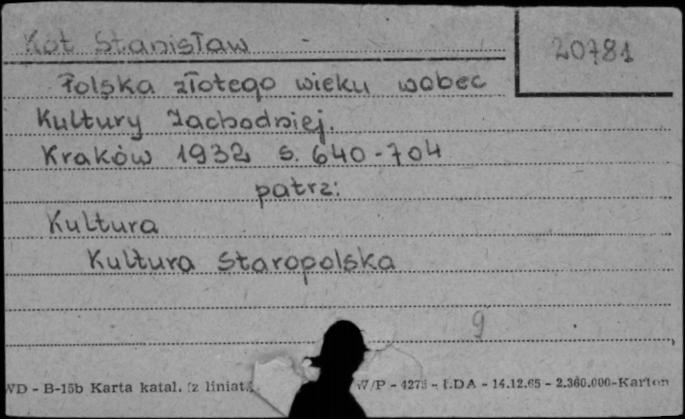 Kot Stanisław
20781
Polska złotego wieku wobec
Kultury Zachodniej.
Kraków 1932 s. 640-704
patrz:
Kultura
Kultura Staropolska
9
WD - B-15b Karta katal. (z liniat.
W/P - 4275 - LDA - 14.12.65 - 2.360.000-Karton